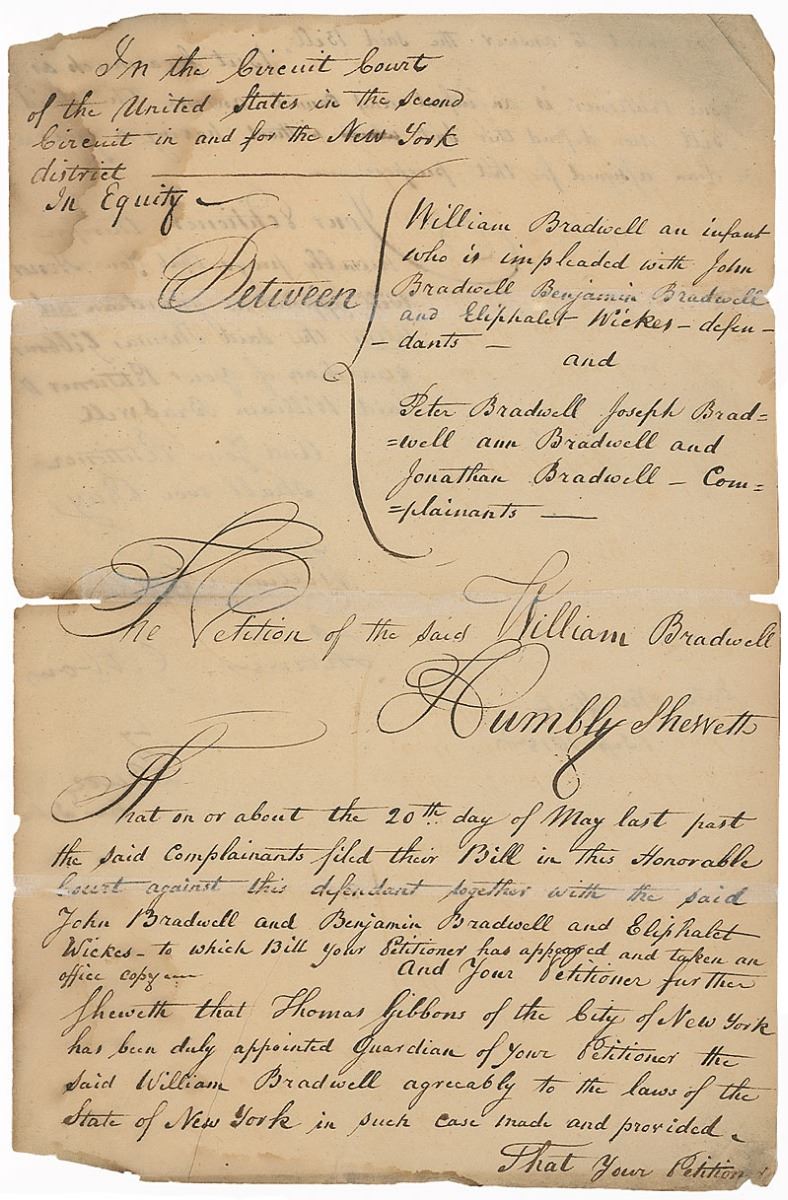 In the Circuit Court
of the United States in the second
Circuit in and for the New York
district
In Equity
Between
William Bradwell an infant
who is impleaded with John
Bradwell Benjamin Bradwell
and Eliphalet Wickes - defen-
- dants -
and
Peter Bradwell Joseph Brad=
=well ann Bradwell and
Jonathan Bradwell - Com=
=plainants —
The Petition of the said William Bradwell
Humbly Sheweth
That on or about the 20th day of May last past
the said Complainants filed their Bill in this Honorable
Court against this defendant together with the said
John Bradwell and Benjamin Bradwell and Eliphalet
Wickes - to which Bill Your Petitioner has appeared and taken an
office copy —
And Your Petitioner further
Sheweth that Thomas Gibbons of the City of New York
has been duly appointed Guardian of your Petitioner the
said William Bradwell agreeably to the laws of the
State of New York in such case made and provided
That Your Petitioner